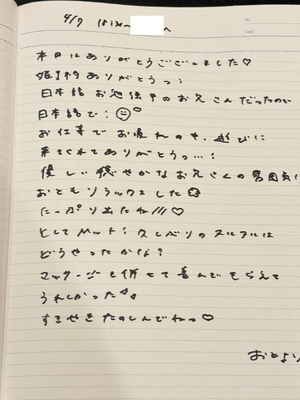 4/7 18:30〜 へ
本日はありがとうございました♡
ありがとうっ:
日本語お勉強中のお兄さんだったので
日本語で:
お仕事でお疲れの中、遊びに
来てくれてありがとうっ…:
優しい穏やかなお兄さんの雰囲気に
おともリラックスした
たっぷり出たね///♡
そしてMット:久しぶりのヌルヌルは
どうやったかな?
マッサージも併せて喜んでもらえて
うれしかった
すきやきたのしんでねっ♡
おとより